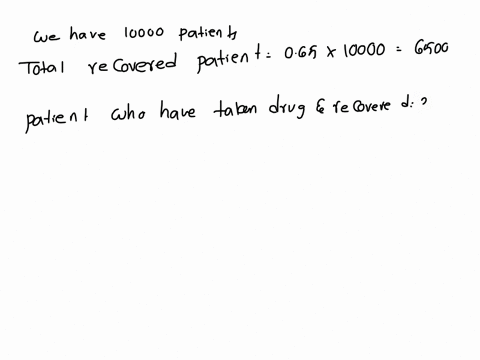 we have 10000 patients
Total recovered patient = 0.65 x 10000 = 6500
patient who have taken drug & recovered: ?